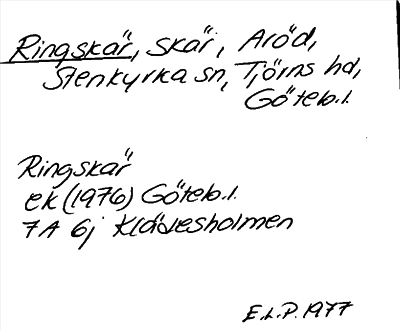 Ringskär, skär, Aröd,
Stenkyrka sn, Tjörns hd,
Göteb.l.
Ringskär
ek (1976) Göteb.l.
7A 6j Klädesholmen
E.L.P. 1977